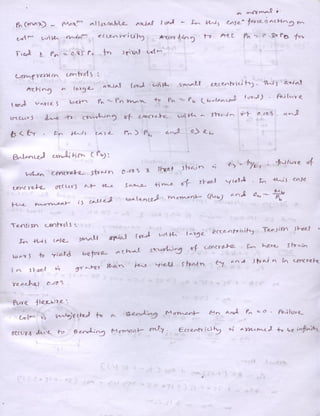 a normal
Pn(max) - Max^m allowable axial load - In this case force acting on
col^m with min^m eccentricity. According to ACI Pn = 0.80 Po for
Tied & Pn = 0.85 Po for spiral col^m.
Compression controls :
Acting a large axial load with small eccentricity. This axial
load varies betn Pn = Pn max to Pn = Pb (balanced load). Failure
occurs due to crushing of concrete with a strain of 0.003 and
In this case Pn > Pb and e < eb
Balanced condition (Pb):
When concrete strain 0.003 & steel strain is failure of
concrete occurs at the same time of steel yield. In this case
the moment is called balanced moment (Mb) and eb = Mb/Pb
Tension controls :
In this case small axial load with large eccentricity. Tension steel
starts to yield before actual crushing of concrete. In here strain
in steel is greater than the yield strain and strain in concrete
reaches 0.003.
Pure flexure :
Col^m is subjected to a Bending Moment Mn and Pn = 0. Failure
occurs due to Bending Moment only. Eccentricity is assumed to be infinity